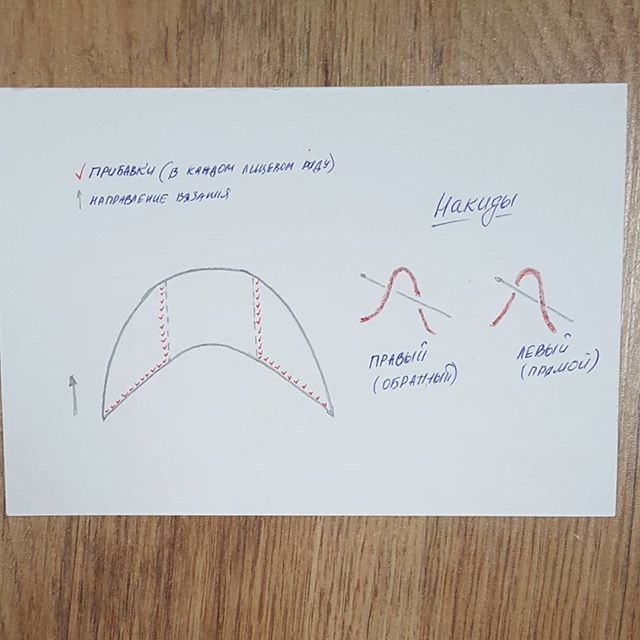 ПРИБАВКИ (В КАЖДОМ ЛИЦЕВОМ РЯДУ)
НАПРАВЛЕНИЕ ВЯЗАНИЯ
Накиды
ПРАВЫЙ
(ОБРАТНЫЙ)
ЛЕВЫЙ
(ПРЯМОЙ)